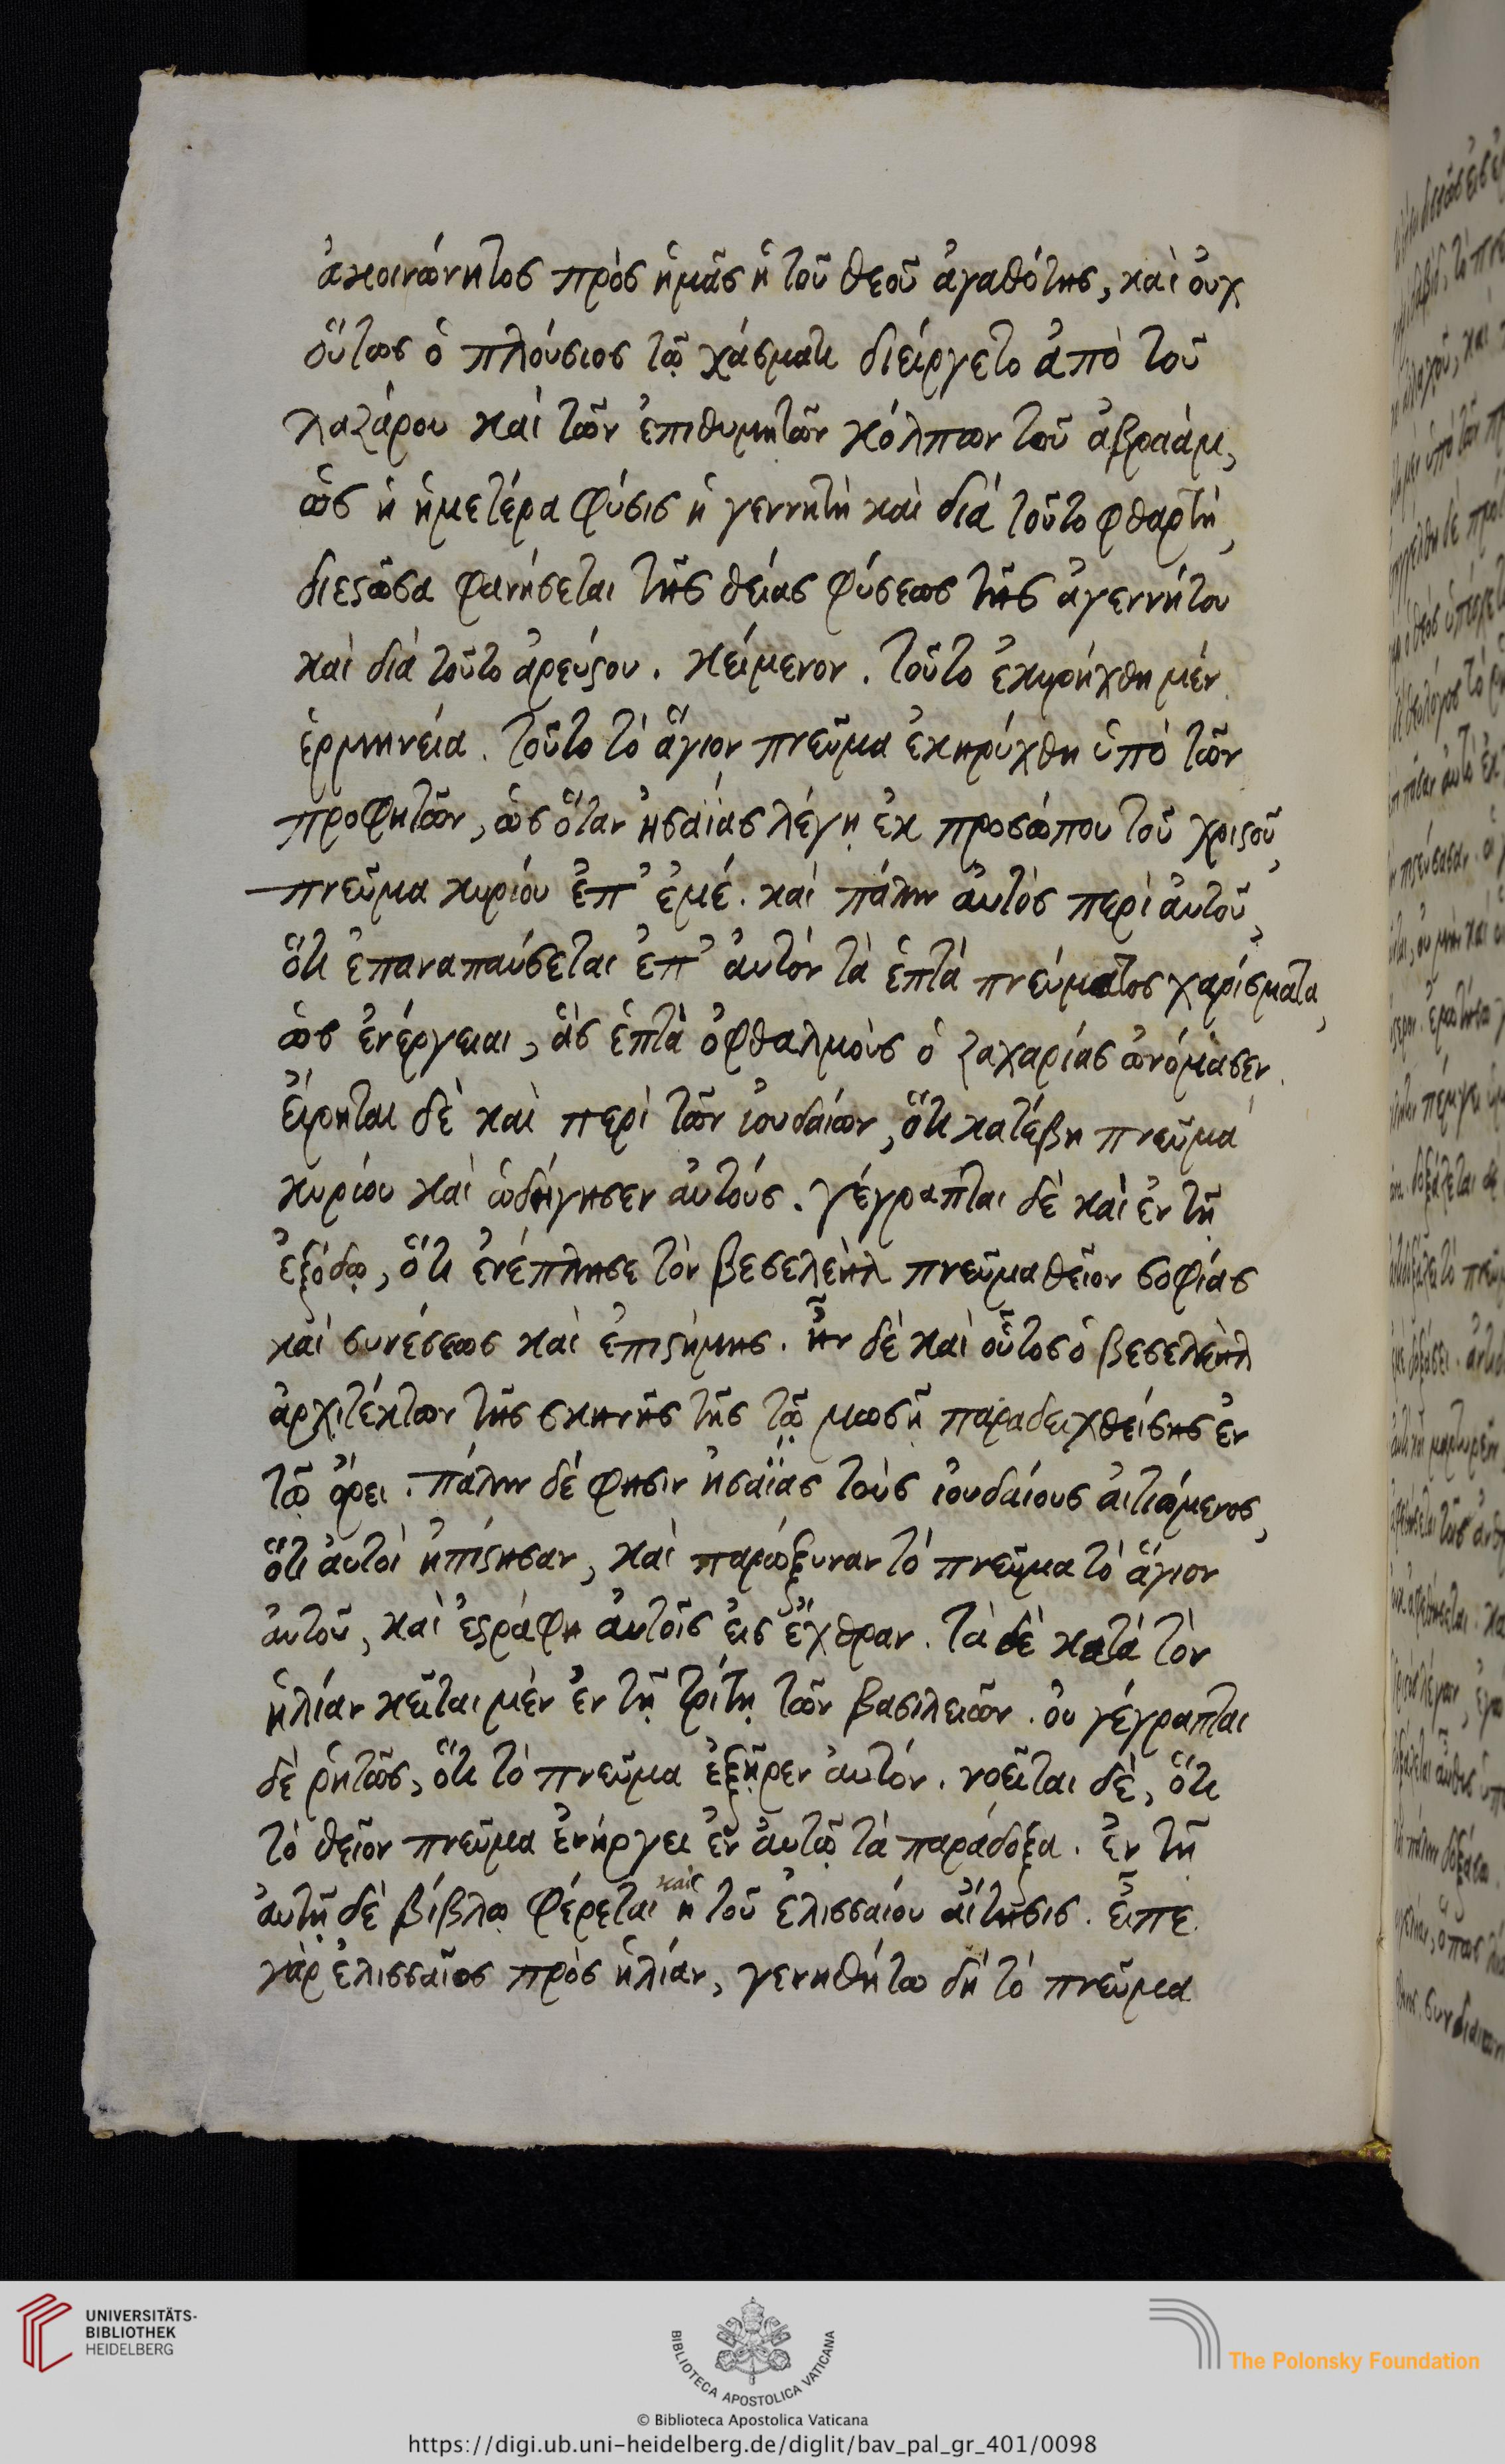 ἀκοινώνητος πρὸς ἡμᾶς ἡ τοῦ θεοῦ ἀγαθότης, καὶ οὐχ
οὕτως ὁ πλούσιος τῷ χάσματι διείργετο ἀπὸ τοῦ
λαζάρου καὶ τῶν ἐπιθυμητῶν κόλπων τοῦ ἀβραάμ,
ὡς ἡ ἡμετέρα φύσις ἡ γεννητὴ καὶ διὰ τοῦτο φθαρτὴ,
διεστῶσα φανήσεται τῆς θείας φύσεως τῆς ἀγεννήτου
καὶ διὰ τοῦτο ἀρεύστου. κείμενον. τοῦτο ἐκηρύχθη μὲν
ἑρμηνεία. τοῦτο τὸ ἅγιον πνεῦμα ἐκηρύχθη ὑπὸ τῶν
προφητῶν, ὡς ὅταν ἠσαΐας λέγῃ ἐκ προσώπου τοῦ χριστοῦ,
πνεῦμα κυρίου ἐπ' ἐμέ. καὶ πάλιν αὐτὸς περὶ αὐτοῦ,
ὅτι ἐπαναπαύσεται ἐπ' αὐτὸν τὰ ἑπτὰ πνεύματος χαρίσματα,
ὡς ἐνέργειαι, ἃς ἑπτὰ ὀφθαλμοὺς ὁ ζαχαρίας ὠνόμασεν.
εἴρηται δὲ καὶ περὶ τῶν ἰουδαίων, ὅτι κατέβη πνεῦμα
κυρίου καὶ ὡδήγησεν αὐτούς. γέγραπται δὲ καὶ ἐν τῇ
ἐξόδῳ, ὅτι ἐνέπλησε τὸν βεσελεὴλ πνεῦμα θεῖον σοφίας
καὶ συνέσεως καὶ ἐπιστήμης. ἦν δὲ καὶ οὗτος ὁ βεσελεὴλ
ἀρχιτέκτων τῆς σκηνῆς τῆς τῷ μωσῇ παραδειχθείσης ἐν
τῷ ὄρει. πάλιν δέ φησιν ἠσαΐας τοὺς ἰουδαίους αἰτιώμενος,
ὅτι αὐτοὶ ἠπίστησαν, καὶ παρώξυναν τὸ πνεῦμα τὸ ἅγιον
αὐτοῦ, καὶ ἐστράφη αὐτοῖς εἰς ἔχθραν. τὰ δὲ κατὰ τὸν
ἡλίαν κεῖται μὲν ἐν τῇ τρίτῃ τῶν βασιλειῶν. οὐ γέγραπται
δὲ ῥητῶς, ὅτι τὸ πνεῦμα ἐξῇρεν αὐτόν. νοεῖται δὲ, ὅτι
τὸ θεῖον πνεῦμα ἐνήργει ἐν αὐτῷ τὰ παράδοξα. ἐν τῇ
αὐτῇ δὲ βίβλῳ φέρεται καὶ ἡ τοῦ ἐλισσαίου αἴτησις. εἶπε
γὰρ ἐλισσαῖος πρὸς ἡλίαν, γενηθήτω δὴ τὸ πνεῦμα
UNIVERSITÄTS-
BIBLIOTHEK
HEIDELBERG
BIBLIOTECA APOSTOLICA VATICANA
The Polonsky Foundation
© Biblioteca Apostolica Vaticana
https://digi.ub.uni-heidelberg.de/diglit/bav_pal_gr_401/0098